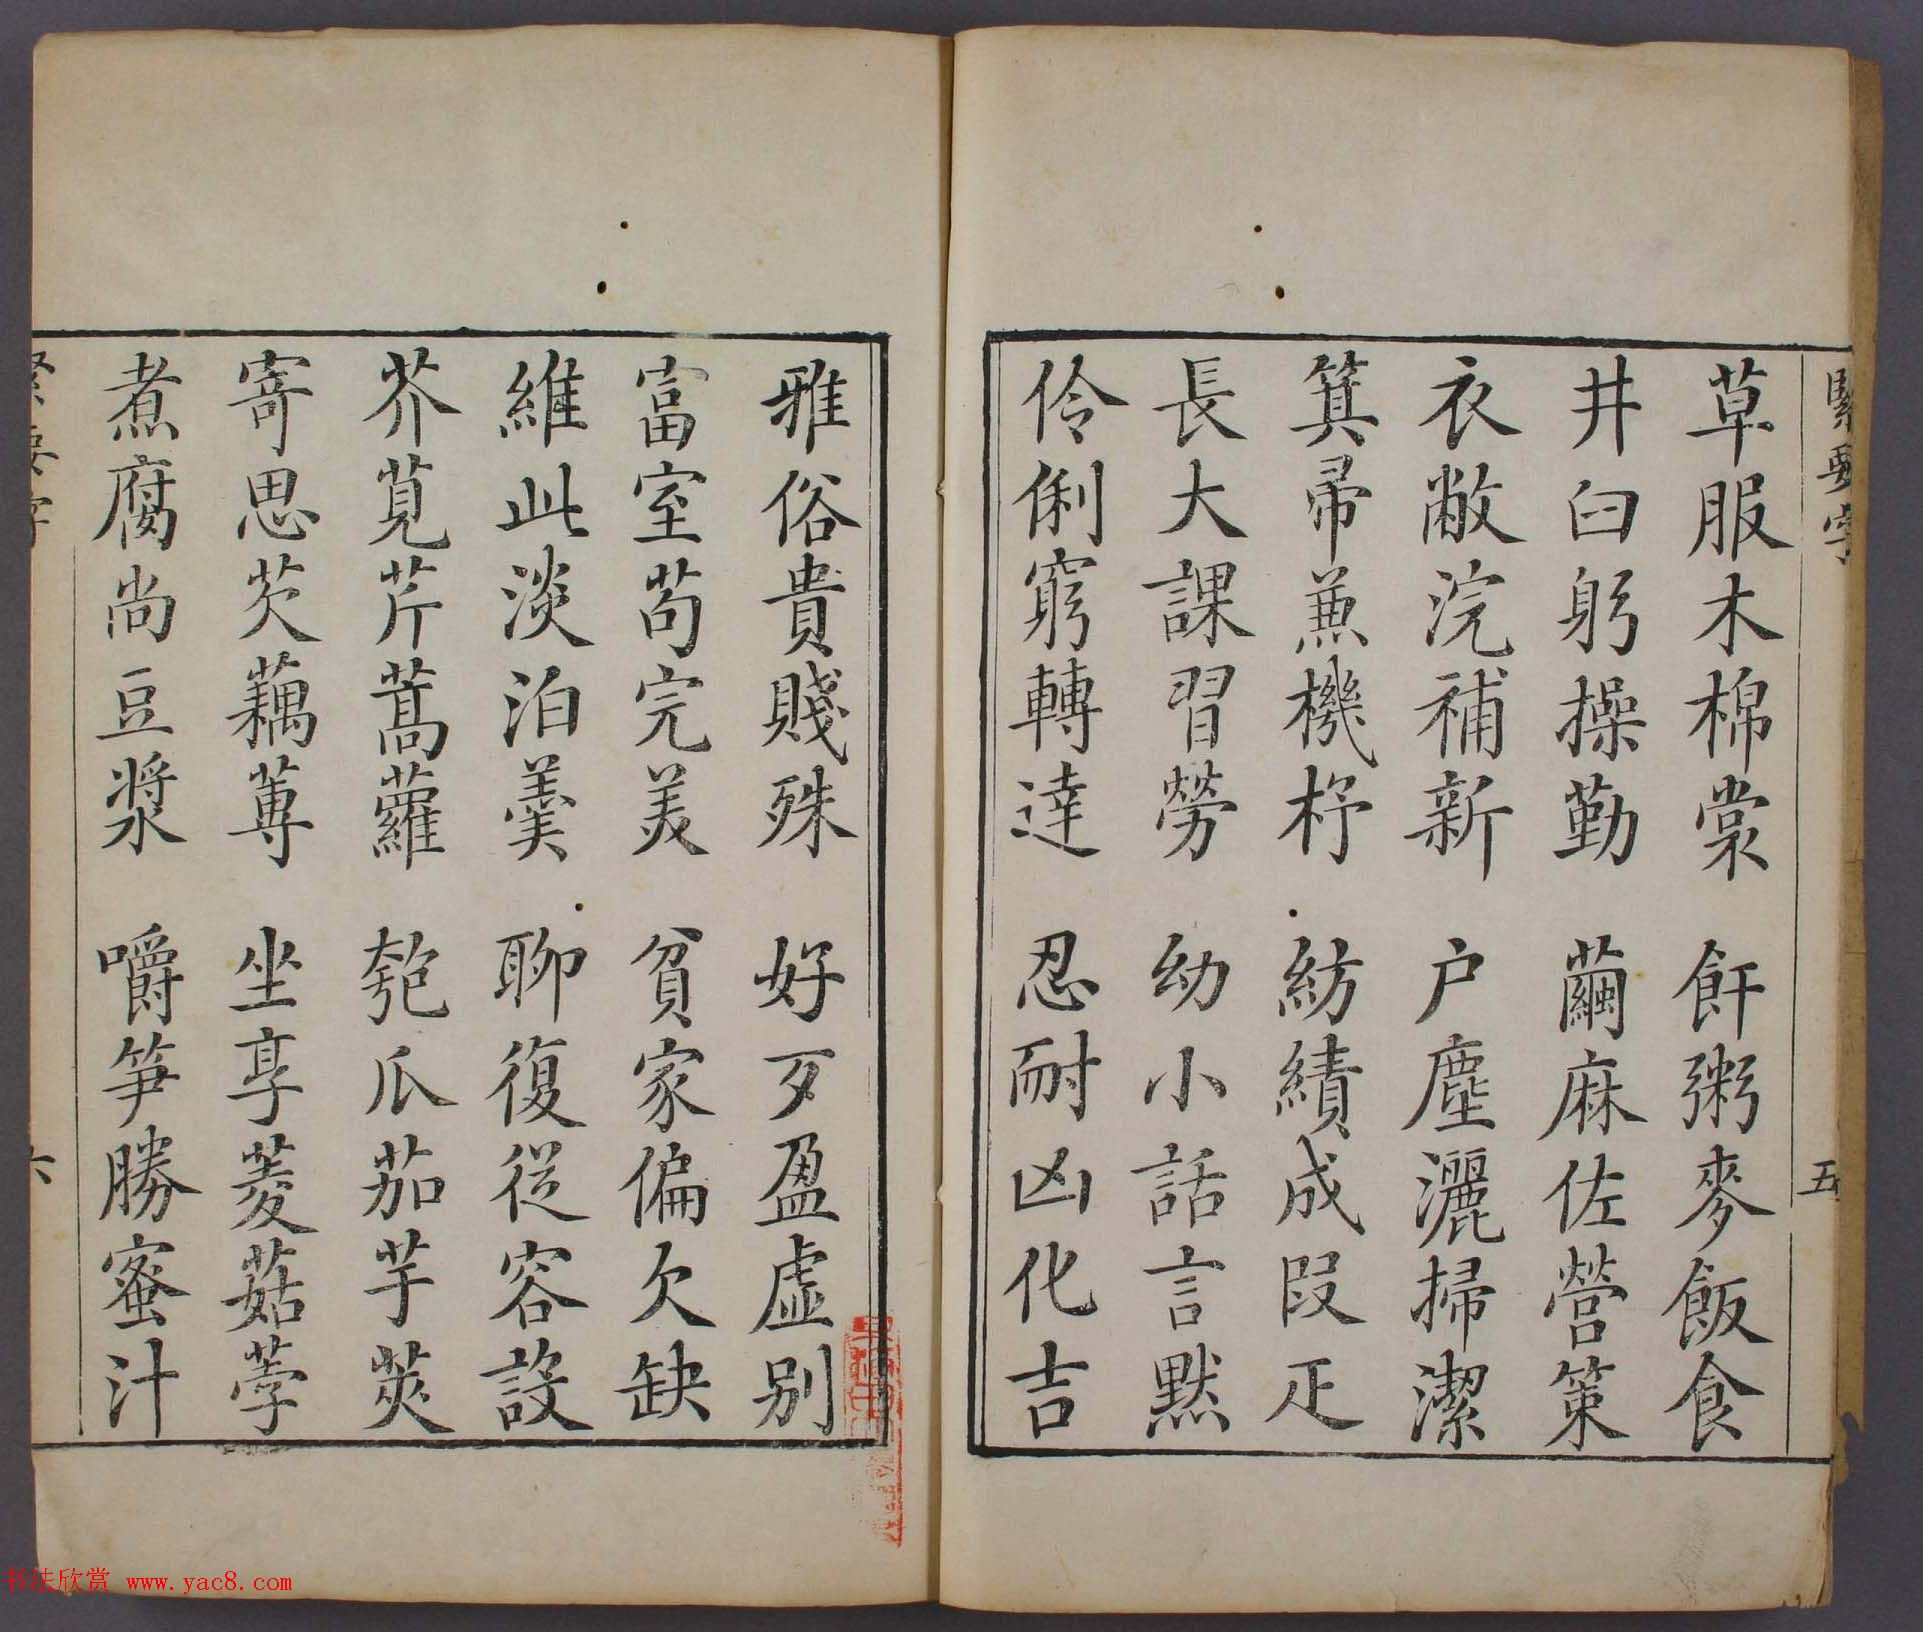 緊要字
五
草服木棉裳 飦粥麥飯食
井臼躬操勤 繭麻佐營策
衣敝浣補新 户塵灑掃潔
箕帚蒹機杼 紡績成段疋
長大課習勞 幼小話言默
伶俐窮轉達 忍耐凶化吉
雅俗貴賤殊 好歹盈虛别
富室苟完美 貧家偏欠缺
維此淡泊羹 聊復從容設
芥莧芹蒿蘿 匏瓜茄芋莢
寄思芡藕蓴 坐享菱菇荸
煮腐尚豆漿 嚼笋勝蜜汁
緊要字
六
书法欣赏 www.yac8.com